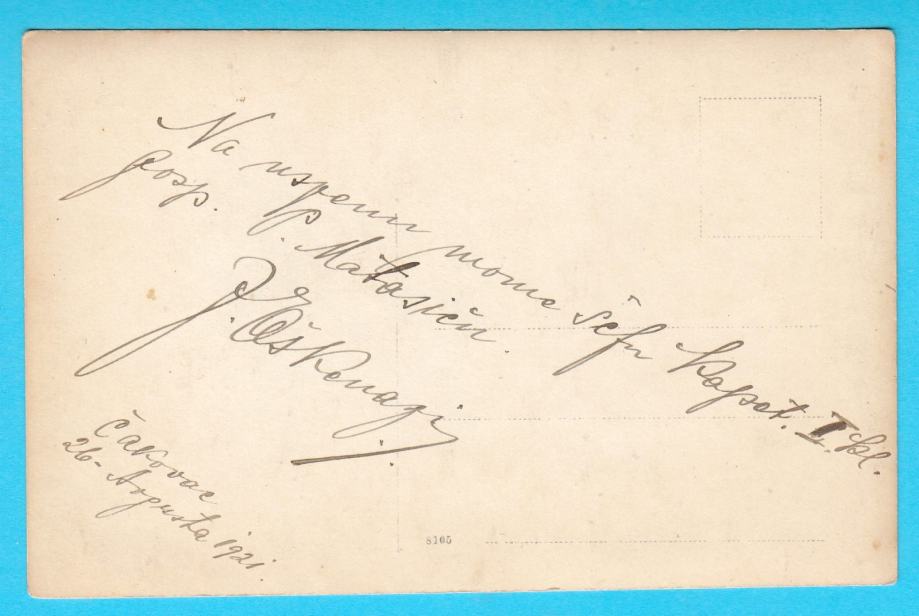 Na uspomenu mome šefu kapet. I kl.
gosp. P. Matasiću.
J. Aškenazi
Čakovac
26 - Avgusta 1921.
8105